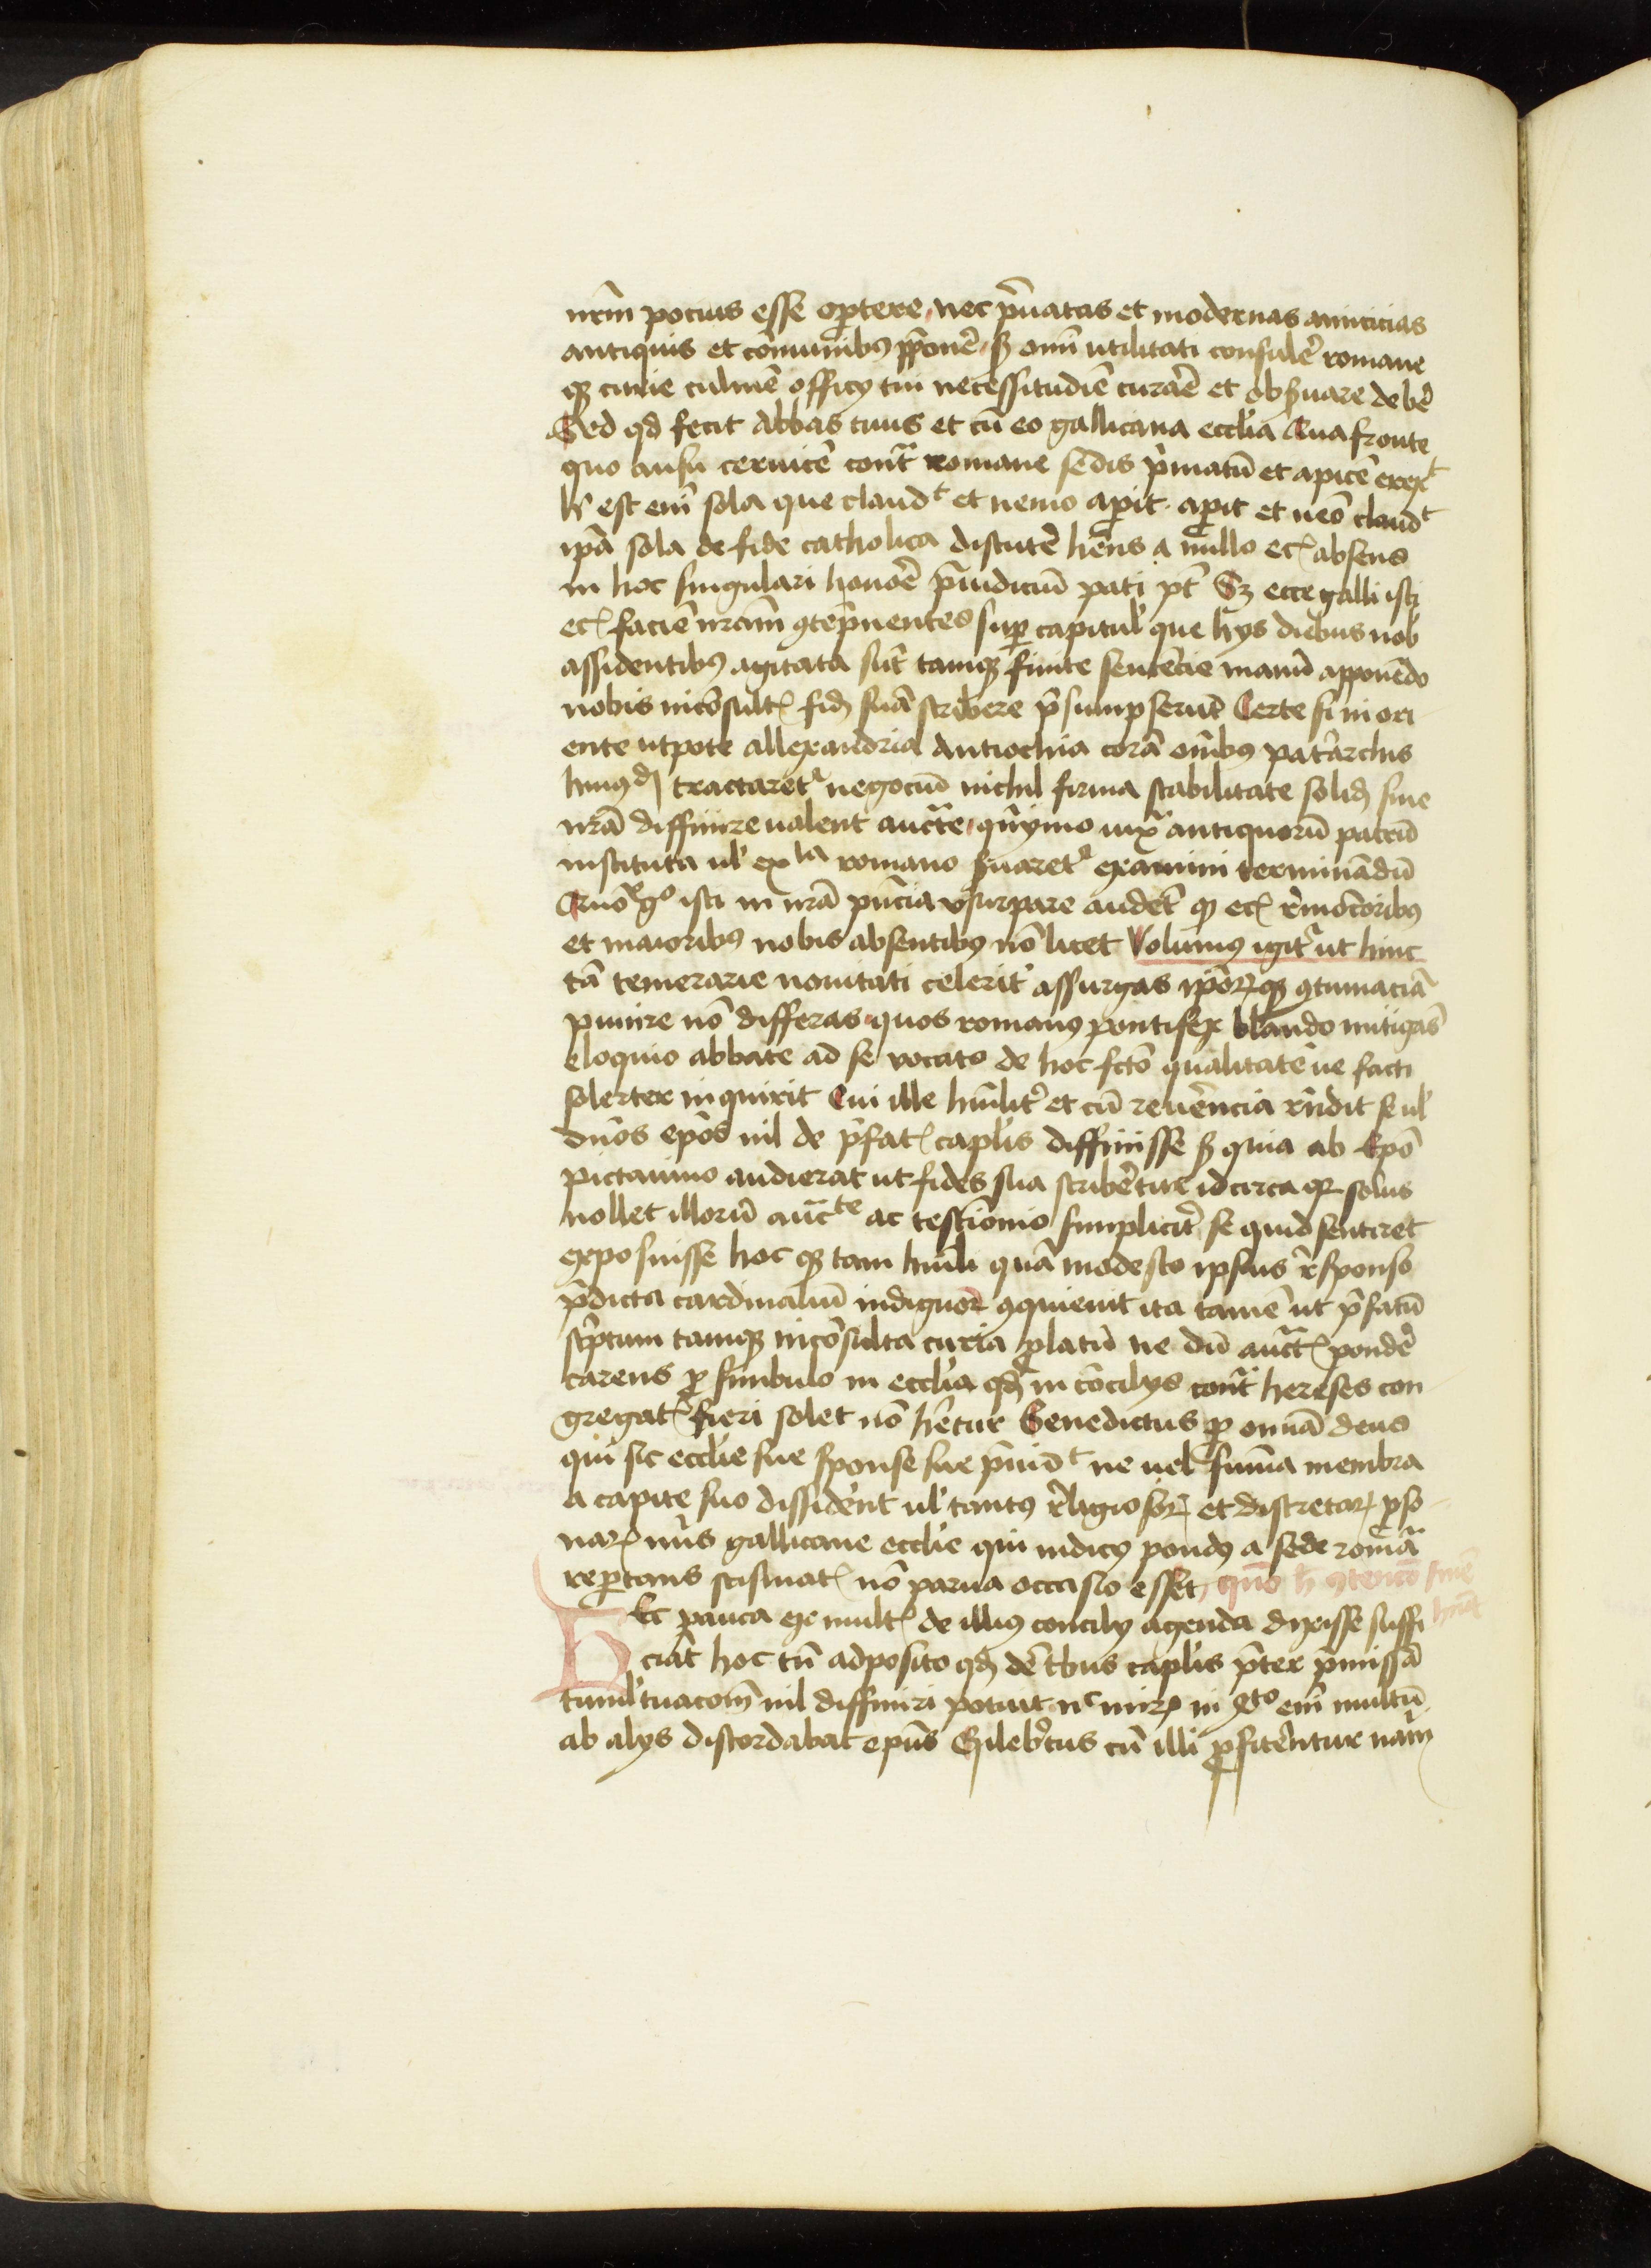 nr̄m pocius esse oꝑtere nec p̄uatas et modernas amicicias
antiquis et cōmunibꝯ p̄ponē sꝫ om̄i utilitati consulē romane
qꝫ curie culmē officij tui necessitudiē curāē et obſuare debē
Sed qd fecit Abbas tuus et cū eo gallicana ecclīa Qua fronte
quo ausu ceruicē contᷓ romane sedis p̄matū et apicē erexᵗ
hᵉ est eni sola que claudᵗ et nemo aꝑit aꝑit et neō claudᵗ
ip̄a sola de fide catholica discutē hēns a nullo ecꝭ absens
in hoc singulari honoē p̄iudiciū pati pt̄ Sꝫ ecce galli isti
ecꝭ faciē nrām ꝯtēpnentes suꝑ capitul' que hijs diebus nob̄
assidentibꝯ agitata sūt tamqꝫ finite sentēcie manū apponēdo
nobis incōsultꝭ fidꝫ suā scribere p̄sumpserūt Certe si in ori
ente utpote allexandria Antiochia corā om̄ibꝯ pat̄archis
huiꝯdī tractaretᷣ negociū nichil firma stabilitate solidꝫ sine
nrā diffinire ualent auctᷓte qūymo iuxᷓ antiquorū patrū
instituta ul' exˡᵃ romano ſuaretᷣ examini terminādū
Quōº gº isti in nrā p̄ncia vsurpare audēt qꝫ ecꝭ r̄mocōribꝯ
et maioribꝯ nobis absentibꝯ nō licet Volumꝯ igitᷣ ut huic
tā temerarie nouitati celerit̄ assurgas ip̄oꝝqꝫ ꝯtumaciā
punire nō differas quos romanꝯ pontifex blando mitigās
eloquio abbate ad se vocato de hoc fctō qualitatē ue facti
solerter inquirit Cui ille hūilit̄ et cū reuēncia r̄ndit se ul'
dn̄os epōs nil de p̄fatꝭ caplīs diffinisse sꝫ quia ab Epō
pictauino audierat ut fides sua scribētur idcirca qꝫ solus
nollet illorū auc̄ᵗᵉ ac testīonio simplicit̄ se quid sentiret
exposuisse hoc qꝫ tam hūili quā modesto ipsius r̄sponso
p̄dicta cardinaliū indignoꝛ ꝯquieuit ita tamē ut p̄fatū
sc̄ptum tamqꝫ incōsulta curia ꝓlatū ne dū auctᷓꝭ pondē
carens ꝓ simbulo in ecclīa qdꝫ in cōcilijs contᷓ hereses con
gregatꝭ fieri solet nō hētur Benedictus ꝑ om̄ia deus
qui sic ecclīe sue sponse sue p̄uidᵗ ne uel sum̄a membra
a capite suo dissidēnt ul' tantꝯ r̄ligiosoꝝ et discretaꝝ ꝑso
naꝝ nūs gallicane ecclīe qui iudicij pondꝯ a sede romā
reꝑtans scismatꝭ nō parua occasio esset
Ec pauca ex multꝭ de illiꝯ concilij agenda dixisse suffi
ciāt hoc tn̄ adposito qdꝫ dē tbus caplīs p̄ter p̄missā
tumltuacōm nil diffiniri potuit
ab alijs discordabat epūs Gilebt̄us cū illi ꝓfitērtur nām